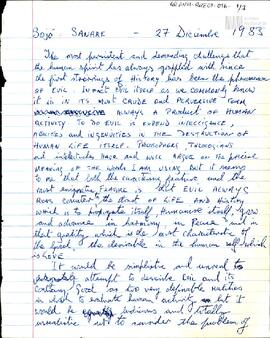 1/3
Bojó SANARE - 27 Dicembre 1983
The most persistent and demanding challenge that
the human spirit has always grappled with since
the first stirrings of History has been the phenomenon
of EVIL. In fact EVIL itself as we commonly know
it is in its most CRUDE and PERVERSIVE form
ALWAYS A PRODUCT OF HUMAN
ACTIVITY. TO DO EVIL is EXPEND INTELLIGENCE,
ABILITIES and INGENUITIES IN THE DESTRUCTION OF
HUMAN LIFE ITSELF. PHILOSOPHERS, THEOLOGIANS
and intellectuals have and WILL ARGUE ON THE PRECISE
MEANING OF THE WORDS I AM USING but it seems
to me that both the enduring feature and the
most FEATURE is that EVIL ALWAYS
RUNS counter to the thrust of LIFE AND HISTORY
which is to propagate itself, HUMANISE itself, grow
and advance in harmony, in PEACE and in
that quality which is the most characteristic of
the Good, the desirable in the human self which
is LOVE.
It would be simplistic and unreal to
attempt to describe EVIL and its
contrary Good as two very definable realities
in which to evaluate human activity, but it
would be tedious and totally
unrealistic not to consider the problem of